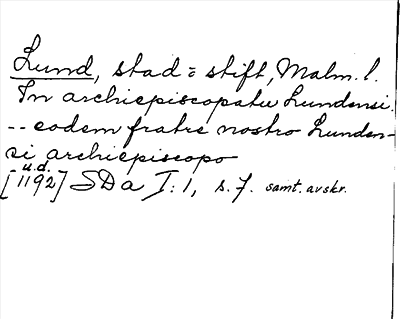 Lund, stad o stift, Malm. l.
In archiepiscopatu Lundensi.
-- eodem fratre nostro Lunden-
si archiepiscopo
u.d.
[1192] SDa I:1, s.7. samt. avskr.